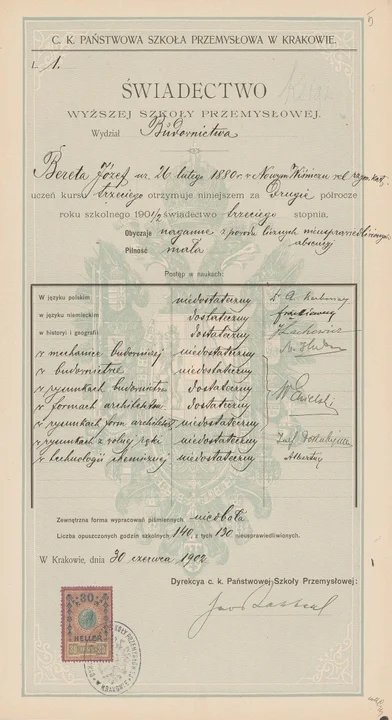 C. K. PAŃSTWOWA SZKOŁA PRZEMYSŁOWA W KRAKOWIE.
L. 1.
ŚWIADECTWO
WYŻSZEJ SZKOŁY PRZEMYSŁOWEJ.
Wydział Budownictwa
Bereta Józef ur. 26 lutego 1880 r. w Nowym Wiśniczu rel. rzym. kat.
uczeń kursu trzeciego otrzymuje niniejszem za Drugie półrocze
roku szkolnego 1901/2 świadectwo trzeciego stopnia.
Obyczaje naganne z powodu licznych nieusprawiedliwionych
Pilność mała absencyj
Postęp w naukach:
W języku polskim niedostateczny
w języku niemieckim dostateczny
w historyi i geografii dostateczny
w mechanice budowniczej niedostateczny
w budownictwie niedostateczny
w rysunkach budownictwa dostateczny
w formach architekton. dostateczny
w rysunkach form architekt. niedostateczny
w rysunkach z wolnej ręki niedostateczny
w technologii chemicznej niedostateczny
Zewnętrzna forma wypracowań piśmiennych niedbała
Liczba opuszczonych godzin szkolnych 140, z tych 130 nieusprawiedliwionych.
W Krakowie, dnia 30 czerwca 1902
Dyrekcya c. k. Państwowej Szkoły Przemysłowej:
30
HELLER